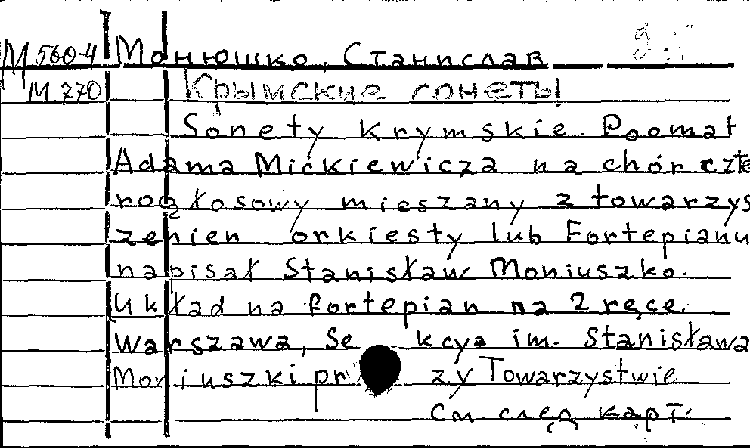 М 560-4 Монюшко, Станислав
М 270 Крымские сонеты
Sonety krymskie. Poomat
Adama Mickiewicza na chór czte
rogłosowy mieszany z towarzys
zenien orkiesty lub Fortepianu
napisał Stanisław Moniuszko.
Układ na fortepian na 2 ręce.
Warszawa, Se kcya im. Stanisława
Moniuszki pr zy Towarzystwie
См след карт.